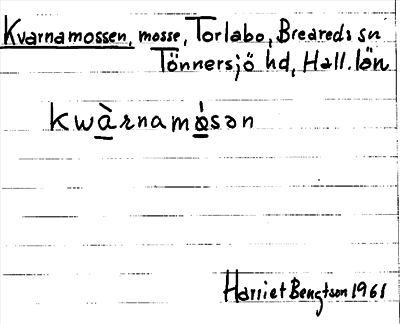 Kvarnamossen, mosse, Torlabo, Breareds sn
Tönnersjö hd, Hall. län
kwàrnamòsən
Harriet Bengtson 1961